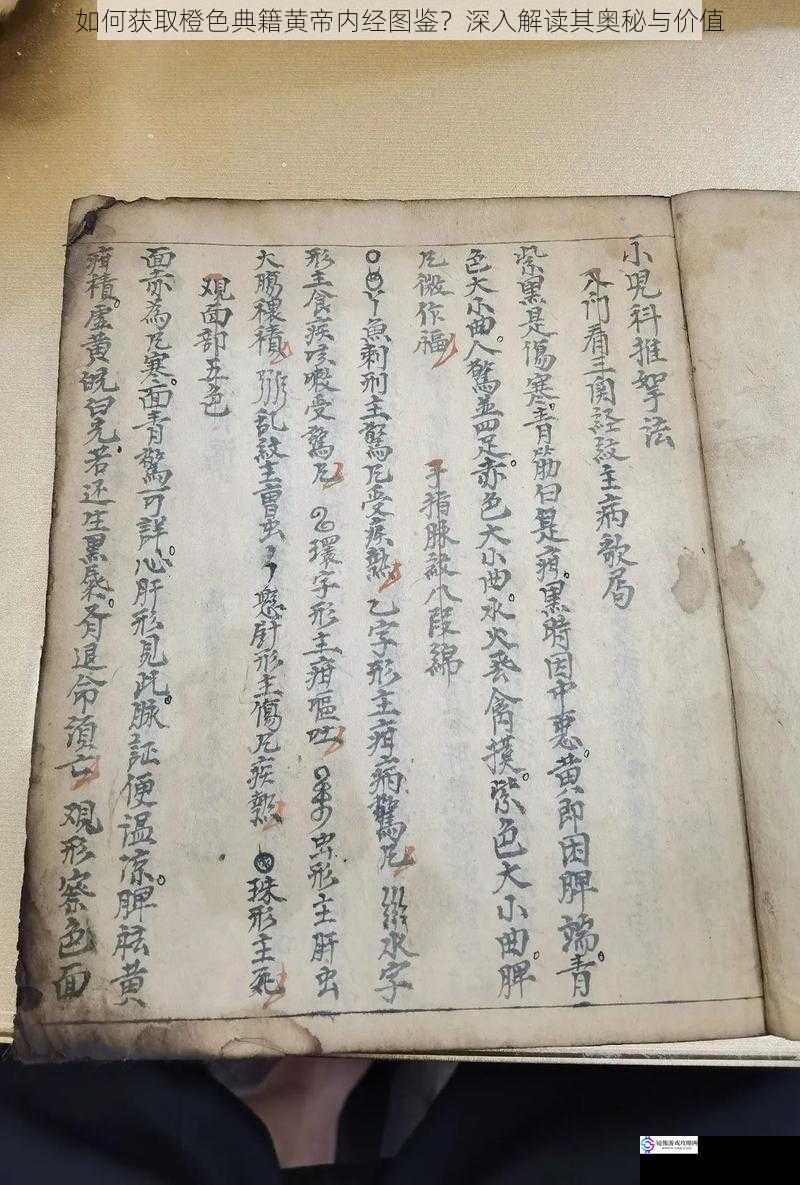 如何获取橙色典籍黄帝内经图鉴？深入解读其奥秘与价值
小児科推拏法
入门看三関経紋主病歌局
紫黒是傷寒青筋白是疳黒時因中悪黄即困脾端青
色大小曲人驚並四足赤色大小曲水火飛禽撲紫色大小曲脾
手指脉紋八段綿
魚刺形主驚風受疾熱乙字形主疳病驚水字
形主食疾咳嗽受驚環字形主疳嘔吐虫形主肝虫
大腸穢積乱紋主虫懸針形主傷疾熱珠形主死
观面部五色
面赤為寒面青驚可詳心肝形見此脉証便温凉脾祛黄
疳積虚黄白光若还生黒退命須亡观形察色面